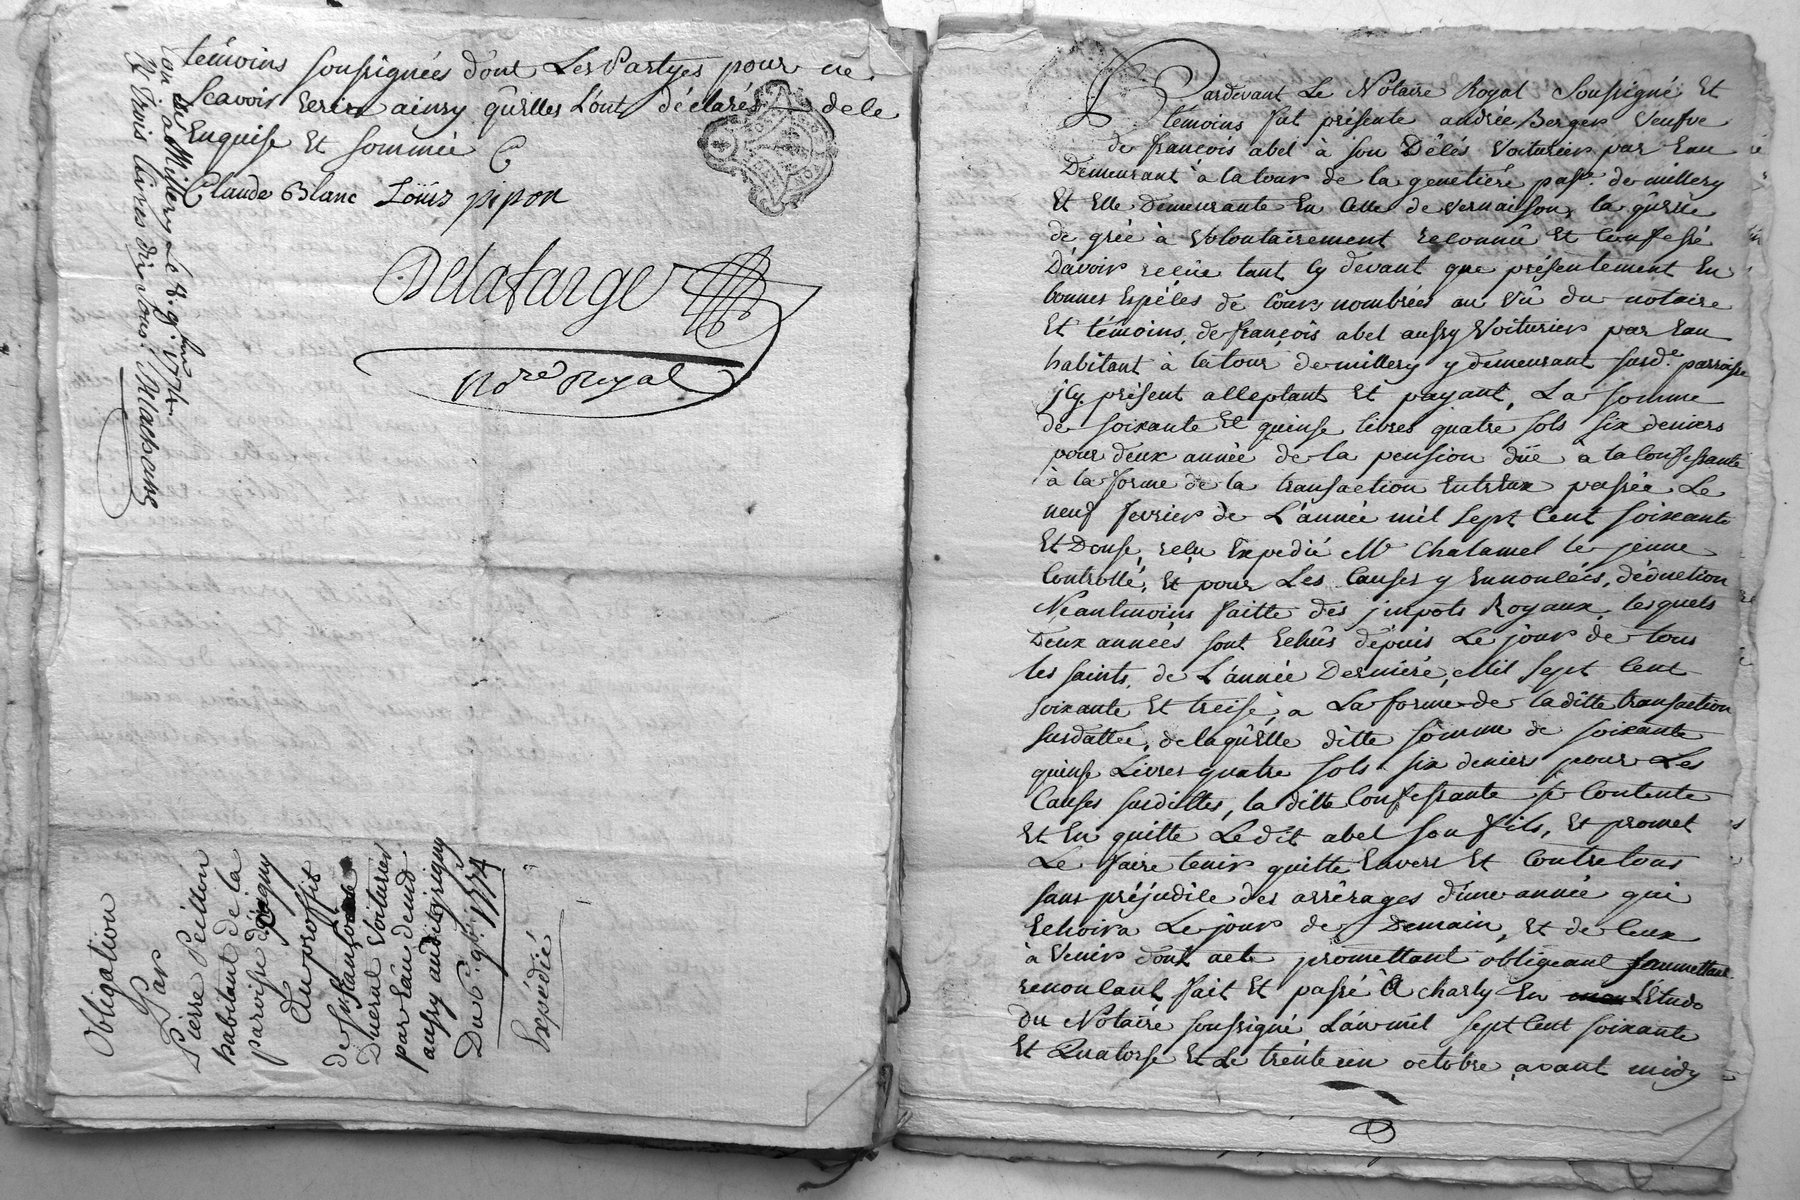 témoins soussignées dont Les Partyes pour ne
scavoir Ecrire ainsy qu'Elles L'ont déclarés de ce
Enquise Et sommée
Claude Blanc Loüis pipon
Delafarge
No.re Royal
con. a Millery Le 8. 9.bre 1774
R. trois livres dix sous. Marthene
Obligation
Par
Pierre Peillon
habitant de la
paroisse d'irigny
Au proffit
de françois
Dueral Voiturier
par Eau demt.
aussy audit irigny
Du 6.e 9b.re 1774
Expédié
Pardevant Le Notaire Royal Soussigné Et
témoins fut présente andrée Berger Veufve
de françois abel à son Décés Voiturier par Eau
Demeurant à la tour de la genetiere pasé. de millery
Et Elle Demeurante En Celle de Vernaison, la quelle
de gréé à Volontairement reconnû Et Confessé
D'avoir reçüe tant Cy devant que présentement En
bonnes Espéces de Cours nombrées au Vû du notaire
Et témoins, de françois abel aussy Voiturier par Eau
habitant à la tour de millery y demeurant susd.e parroisse
jcy présent acceptant Et payant, La somme
de soixante Et quinse livres quatre sols six deniers
pour deux année de la pension düe a la Confessante
à la forme de la transaction Entr'Eux passée Le
neuf fevrier de L'année mil sept Cent soixante
Et Douse, reçu Expedié M.e Chalamel le jeune
Controllé, Et pour Les Causes y Ennoncées, déduction
Néantmoins faitte des jmpots Royaux, lesquels
Deux années sont Echûs dépuis Le jour de tous
les saints, de L'année Derniére, Mil Sept Cent
soixante Et treise, a La forme de la ditte transaction
susdattée, de laquelle ditte somme de soixante
quinse Livres quatre sols six deniers pour Les
Causes susdittes, la ditte Confessante se Contente
Et En quitte Ledit abel son fils, Et promet
Le faire tenir quitte Envers Et Contre tous
sans préjudice des arrérages d'une année qui
Echoira Le jour de Demain, Et de Ceux
à Venir dont acte promettant obligeant soumettant
renonçant fait Et passé à Charly En L'Etude
du Notaire soussigné L'an mil sept Cent soixante
Et Quatorse Et Le trente un octobre avant midy